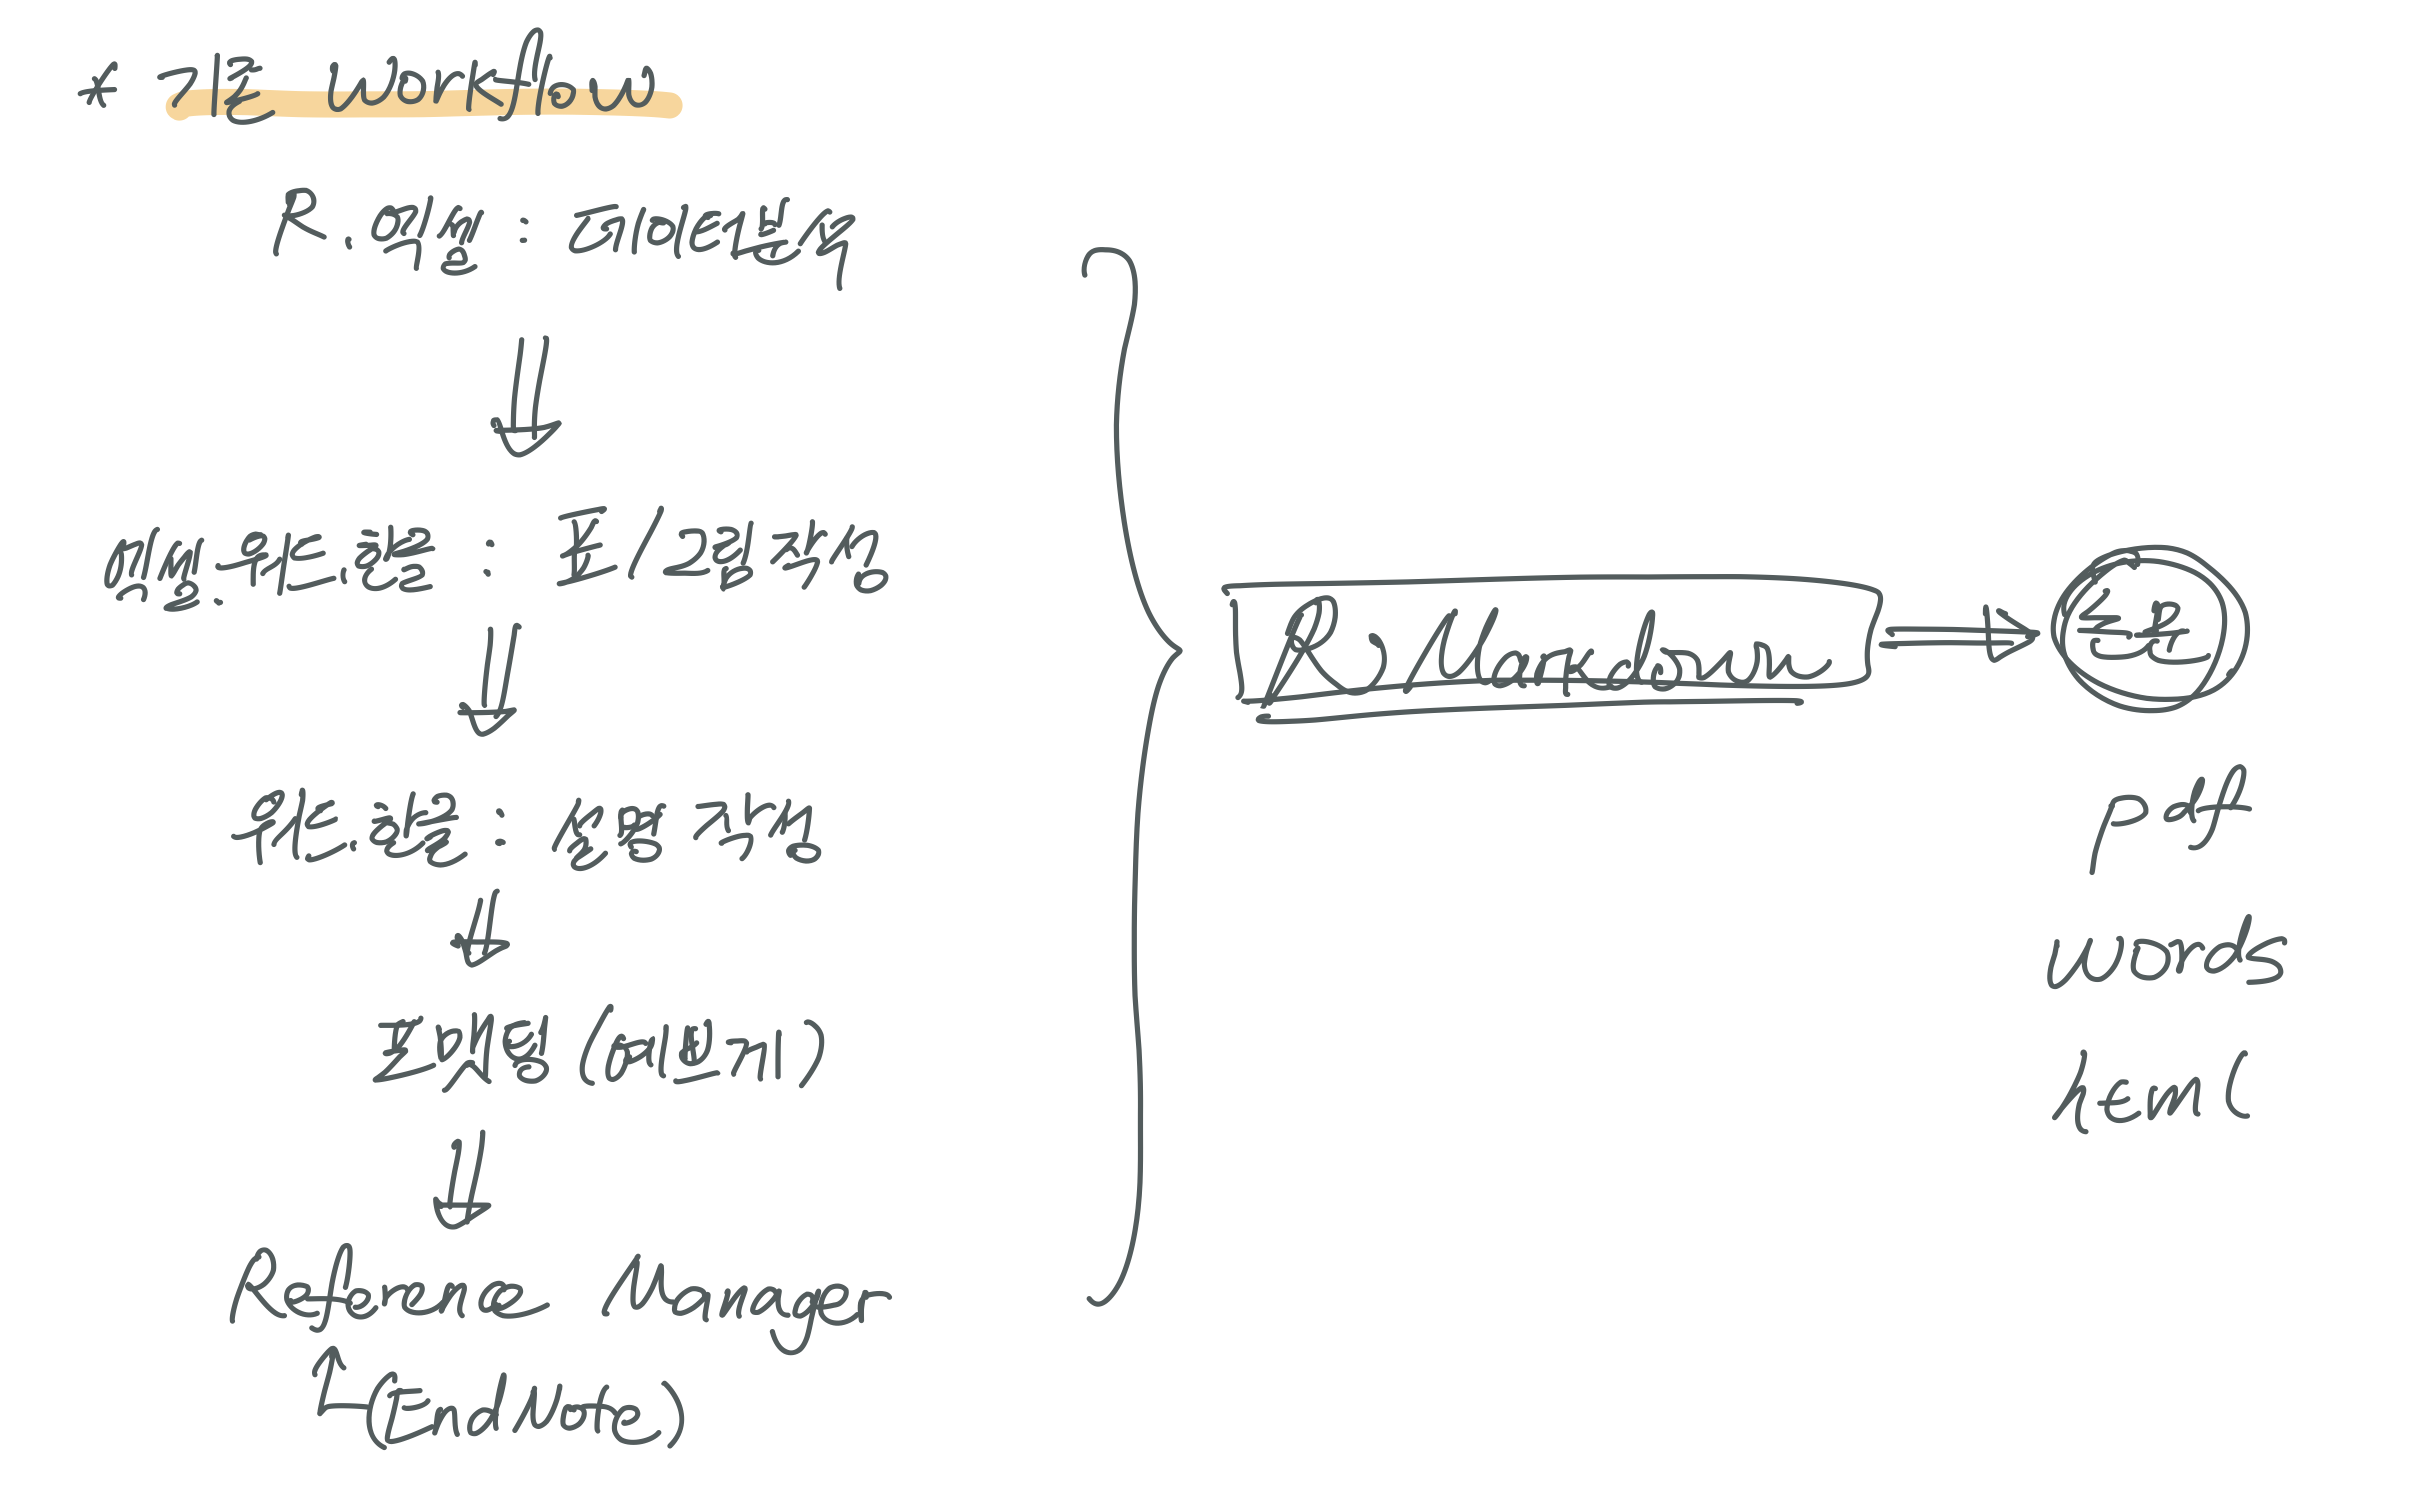 * 기존 Workflow
R. 엑셀 : 데이터분석
엑셀.워드.한글 : 표/그림작성
워드.한글 : 설명 작성
조판용 (어렵게)
Reference Manager
(EndNote)
R Markdown
출판
pdf
words
html